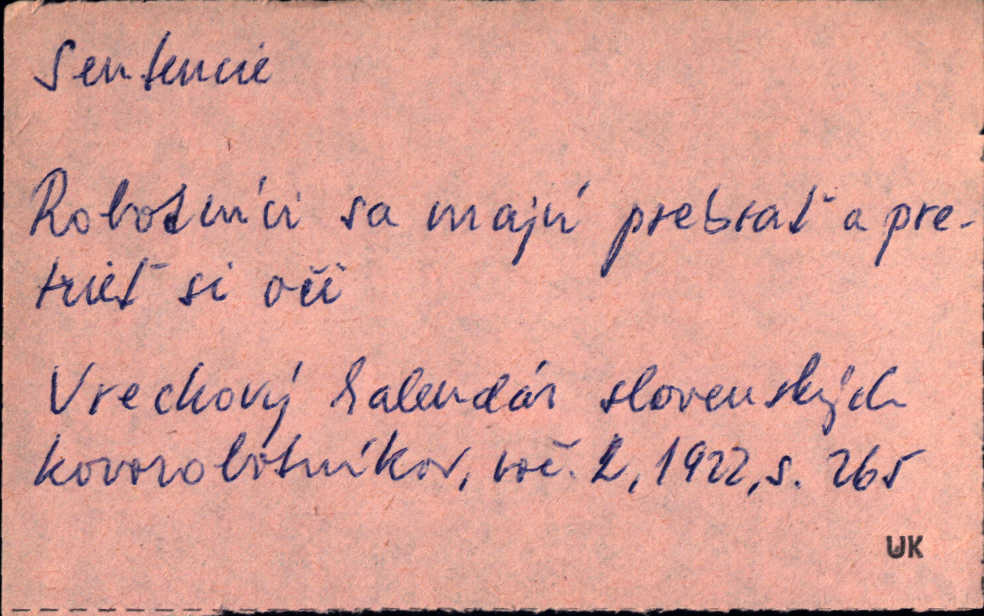 Sentencie
Robotníci sa majú prebrať a pre-
trieť si oči
Vreckový kalendár slovenských
kovorobotníkov, roč. 2, 1922, s. 265
UK